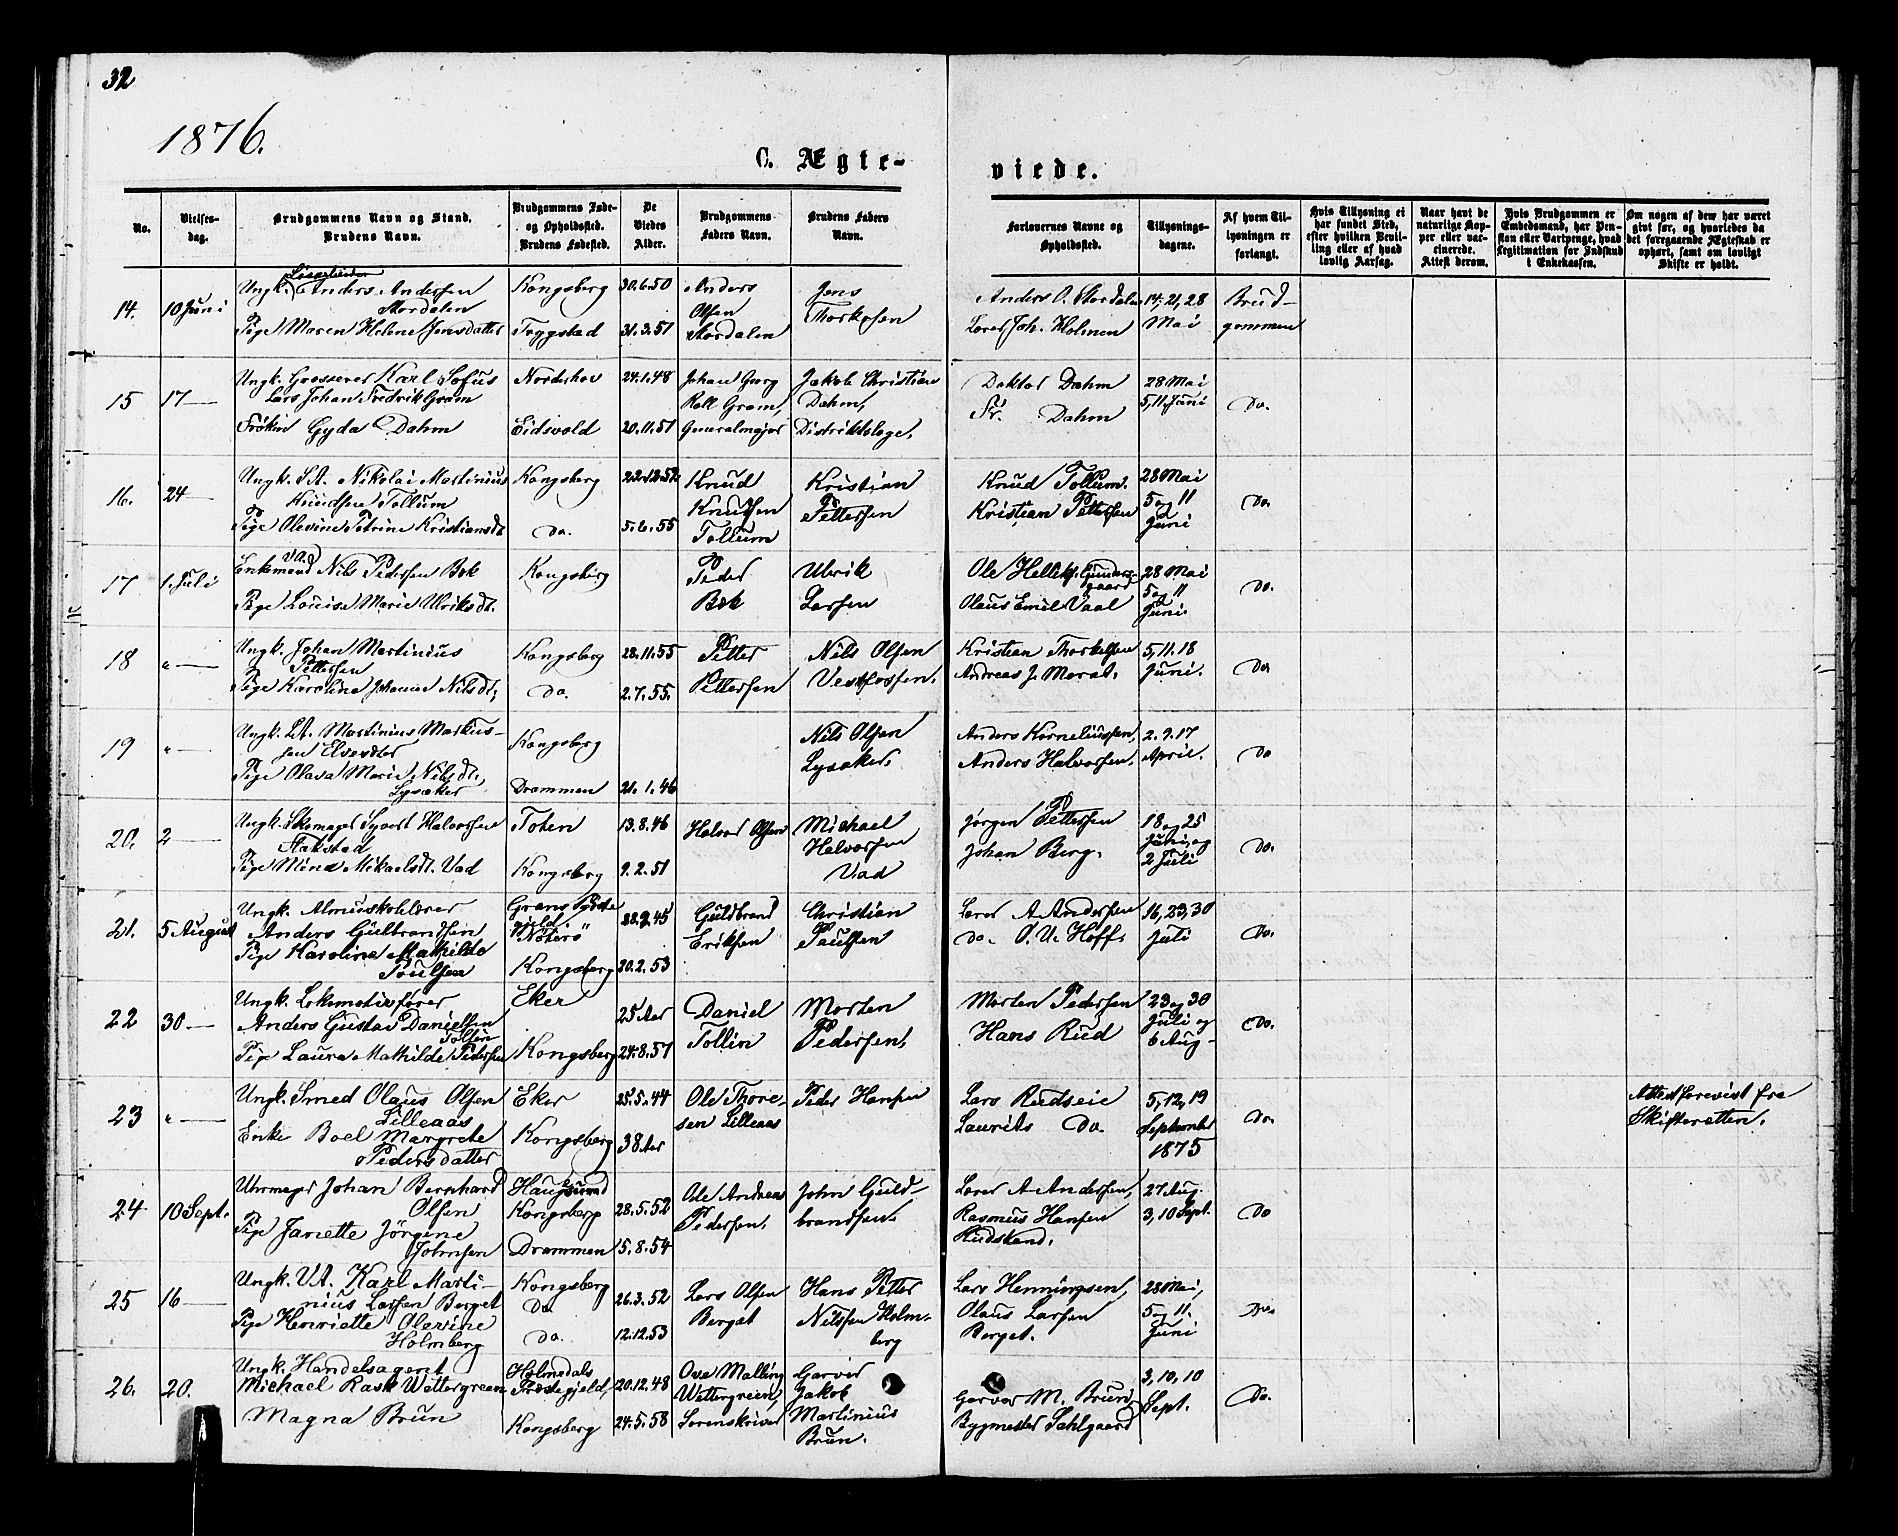 32
1876.
C. Ægte-
viede.
No.
Vielses-
dag.
Brudgommens Navn og Stand.
Brudens Navn.
Brudgommens Føde-
og Opholdssted.
Brudens Fødested.
De
Viedes
Alder.
Brudgommens
Faders Navn.
Brudens Faders
Navn.
Forlovernes Navne og
Opholdssted.
Tillysnings-
dagene.
Af hvem Til-
lysningen er
forlangt.
Hvis Tillysning ei
har fundet Sted,
efter hvilken Bevil-
ling eller af hvad
lovlig Aarsag.
Naar havt de
naturlige Kop-
per eller vac-
cinerede.
Attest derom.
Hvis Brudgommen er
Embedsmand, har Pen-
sion eller Vartpenge, hvad
Legitimation for Indskud
i Enkekassen.
Om nogen af dem har været
gift før, og hvorledes da
det foregaaende Ægteskab er
ophørt, samt om lovligt
Skifte er holdt.
14. 10 Juni
Ungk. Anders Andersen
Stordalen
Pige Maren Helene Jensdatter
Kongsberg
Trygstad
30.6.50
31.3.51
Anders
Olsen
Stordalen
Jens
Thorkelsen
Anders O. Stordalen
Lærer Joh. Holmen
14, 21, 28
Mai
Brud-
gommen
15 17
Ungk. Grosserer Karl Sofus
Lars Johan Fredrik Gram
Frøken Gyda Dahm
Norderhov
Eidsvold
24.1.48
20.11.51
Johan Georg
Rall Gram,
Generalmajor
Jakob Christian
Dahm,
Distriktslæge.
Doktor Dahm
Fr. Dahm
28 Mai
5, 11 Juni
Do.
16. 24
Ungk. S.A. Nikolai Martinius
Knudsen Tollum
Pige Olevine Petrine Kristiansdt.
Kongsberg
Do.
22.12.52
5.6.55
Knud
Knudsen
Tollum
Kristian
Pettersen
Knud Tollum.
Kristian Pettersen
28 Mai
5 og 11
Juni
Do.
17 1. Juli
Enkemand Nils Pedersen Bek
Pige Louise Marie Ulriksdt.
Kongsberg
Peder
Bek
Ulerik
Larsen
Ole Helliks. Gunders-
gaard
Olaus Emil Vaal
28 Mai
5 og 11
Juni.
Do.
18 "
Ungk. Johan Martinius
Pettersen
Pige Karoline Johanne Nilsdt.
Kongsberg
Do.
28.11.55
2.7.55.
Petter
Pettersen
Nils Olsen
Vestfossen.
Kristian Thorkelsen
Andreas J. Morat.
5, 11. 18
Juni.
Do.
19 "
Ungk. Martinius Markus-
sen
Pige Olava Marie Nilsdt.
Lysaker
Kongsberg
Drammen
21.1.46
Nils Olsen
Lysaker.
Anders Korneliussen,
Anders Halvorsen.
2. 9. 17
April.
Do
20. 2
Ungk. Skomager Syvert Halvorsen
Stakstad
Pige Mina Mikaelsdt. Vad
Toten
Kongsberg
13.8.46
9.2.51
Halvor Olsen
Michael
Halvorsen
Vad
Jørgen Pettersen
Johan Berg.
18 og 25
Juni, og
2 Juli
Do.
21. 5 August
Ungk. Almueskolelærer
Anders Gulbrandsen
Pige Karoline Mathilde
Poulsen
Grans Præste
gield
"Nøterø"
Kongsberg
20.2.53
Guldbrand
Eriksen
Christian
Paulsen
Lærer A Andersen
do. O. U. Hoff.
16, 23, 30
Juli
Do.
22 30
Ungk. Lokomotivfører
Anders Gustav Danielsen
Tollin
Pige Laura Mathilde Pedersen
Eker
Kongsberg
25 Aar
24.8.51
Daniel
Tollin
Morten
Pedersen.
Morten Pedersen
Hans Rud
23 og 30
Juli og
6 Aug
Do.
23 "
Ungk. Smed Olaus Olsen
Lilleaas
Enke Boel Margrete
Pedersdatter
Eker
Kongsberg
25.5.44
38 Aar
Ole Thore-
sen Lilleaas
Peder Hansen
Lars Rudseie
Laurits Do.
5, 12, 19
September
1875
Do.
Attest forevist fra
Skifteretten.
24. 10 Sept.
Uhrmager Johan Bernhard
Olsen
Pige Janette Jørgine
Johnsen
Haugsund
Kongsberg
Drammen
28.5.52
15.8.54
Ole Andreas
Pedersen.
John Guld-
brandsen.
Lærer A Andersen,
Rasmus Hansen
Rudstend.
27 Aug.
3, 10 Sept.
Do
25 16
Ungk. V.A. Karl Marti-
nius Larsen Berget
Pige Henriette Olevine
Holmberg
Kongsberg
Do
Do.
26.3.52
12.12.53
Lars Olsen
Berget
Hans Petter
Nilssen Holm-
berg
Lars Henningsen,
Olaus Larsen
Berget.
28 Mai,
5 og 11.
Juni
Do.
26. 20.
Ungk. Handelsagent
Michael Rask Wettergreen
Magna Brun
Holmedals
Præstegjeld,
Kongsberg
20.12.48
24.5.58
Ove Malling
Wettergreen,
Sorenskriver
Garver
Jakob
Martinius
Brun.
Garver M. Brun,
Bygmester Sahlgaard
3, 10, 10
Sept.
Do.